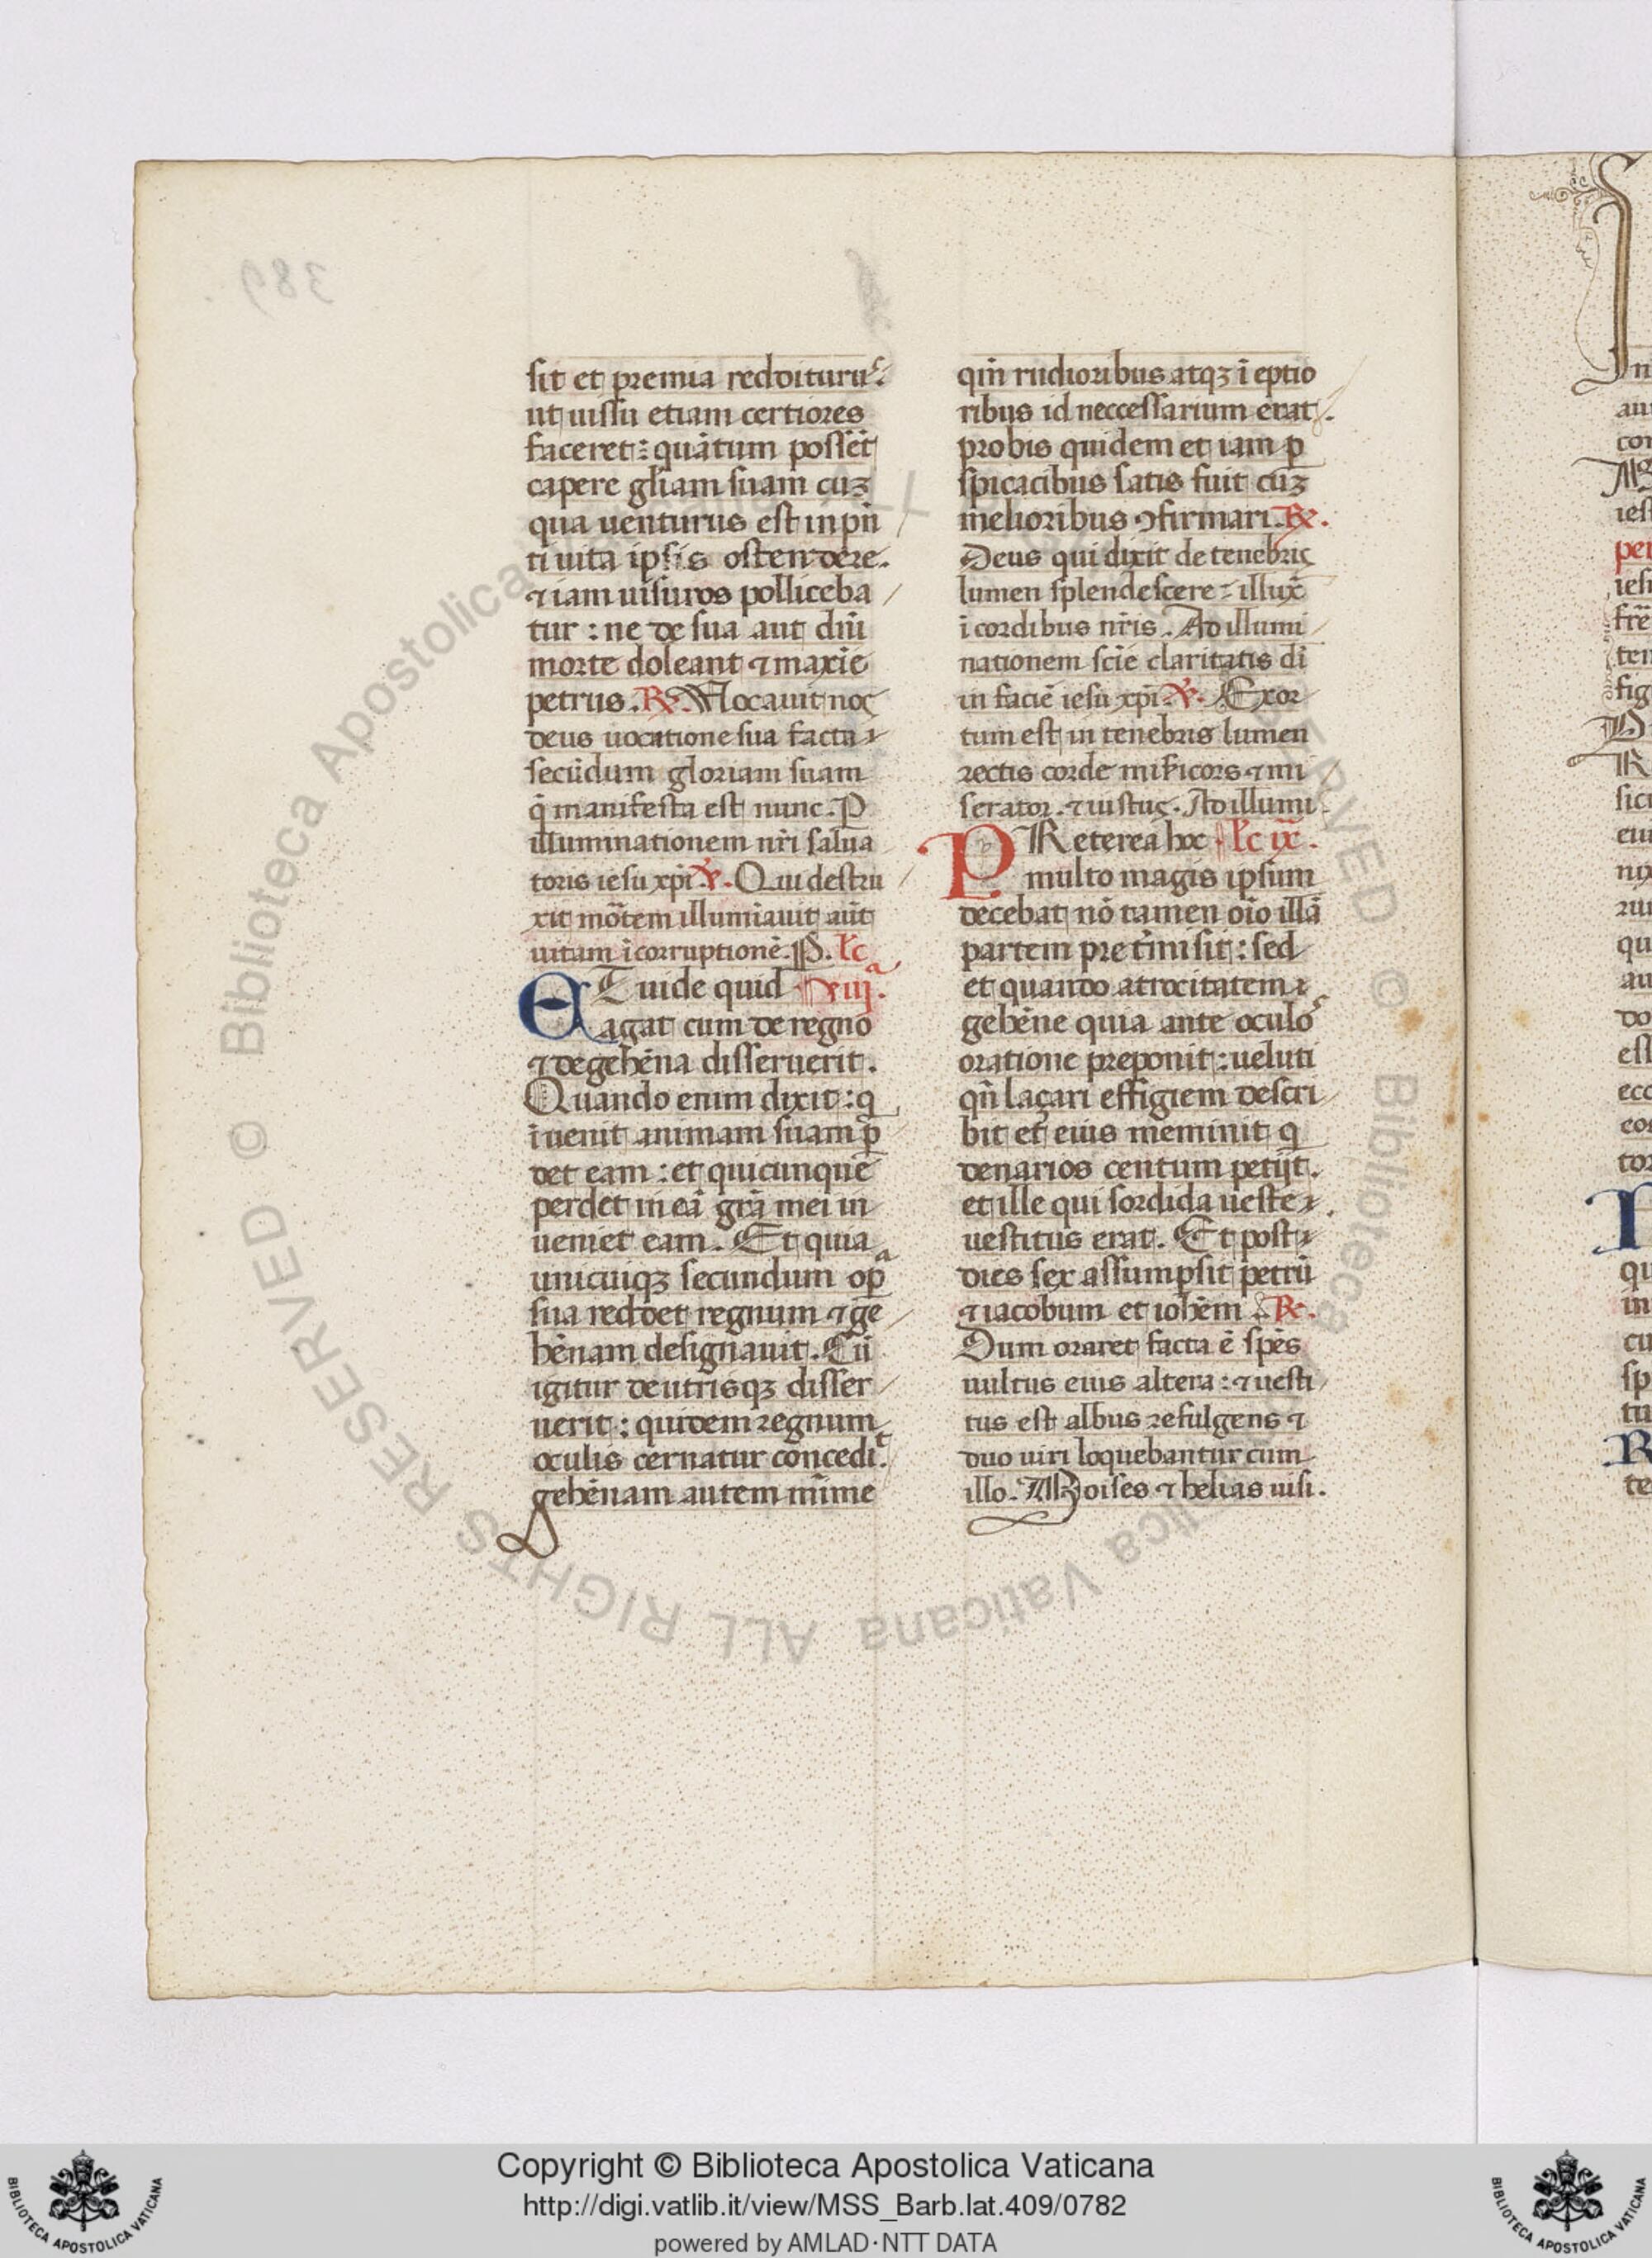 sit et premia redditurus:
ut uissu etiam certiores
faceret: quātum possēt
capere glīam suam cuz
qua uenturus est in pn̄
ti uita ipsis ostendere.
⁊ iam uisuros polliceba
tur: ne de sua aut dn̄i
morte doleant ⁊ maxīe
petrus. ℟. Uocauit nos
deus uocatione sua facta
secūdum gloriam suam
q̇ manifesta est nunc. P
illuminationem nr̄i salua
toris iesu xp̄i ℣. Qui destru
xit mōtem illumīauit aūt
uitam ī corruptionē. P. lc̄
Et uide quid viijᵃ.
agat cum de regno
⁊ de gehēna disseruerit.
Quando enim dixit: q
īuenit animam suam ꝑ
det eam: et quicunque
perdet in eā grā mei in
ueniet eam. Et quia
unicuiqꝫ secundum opᵃ
sua reddet regnum ⁊ ge
hēnam designauit. Cū
igitur de utrisqꝫ disser
uerit: quidem regnum
oculis cernatur concedit.
gehēnam autem mīme
qm̄ rudioribus atqꝫ ī eptio
ribus id neccessarium erat.
probis quidem et iam ꝑ
spicacibus satis fuit cuꝫ
melioribus ꝯfirmari. ℟.
Deus qui dixit de tenebris
lumen splendescere: illux̄
ī cordibus nr̄is. Ad illumi
nationem scīe claritatis dī
in faciē iesu xp̄i ℣. Exor
tum est in tenebris lumen
rectis corde mis̄icors ⁊ mi
serator ⁊ iustus. Ad illumi
PReterea hoc lc̄ ix.
multo magis ipsum
decebat nō tamen oīo illā
partem pret̄misit: sed
et quando atrocitatem
gehēne quia ante oculos
oratione preponit: ueluti
qn̄ laçari effigiem descri
bit et eius meminit q
denarios centum petijt.
et ille qui sordida ueste
uestitus erat. Et post
dies sex assumpsit petrū
⁊ iacobum et ioh̄em ℟.
Dum oraret facta ē spēs
uultus eius altera: ⁊ uesti
tus est albus refulgens ⁊
duo uiri loquebantur cum
illo. Moises ⁊ helias uisi.
Copyright © Biblioteca Apostolica Vaticana
http://digi.vatlib.it/view/MSS_Barb.lat.409/0782
powered by AMLAD·NTT DATA